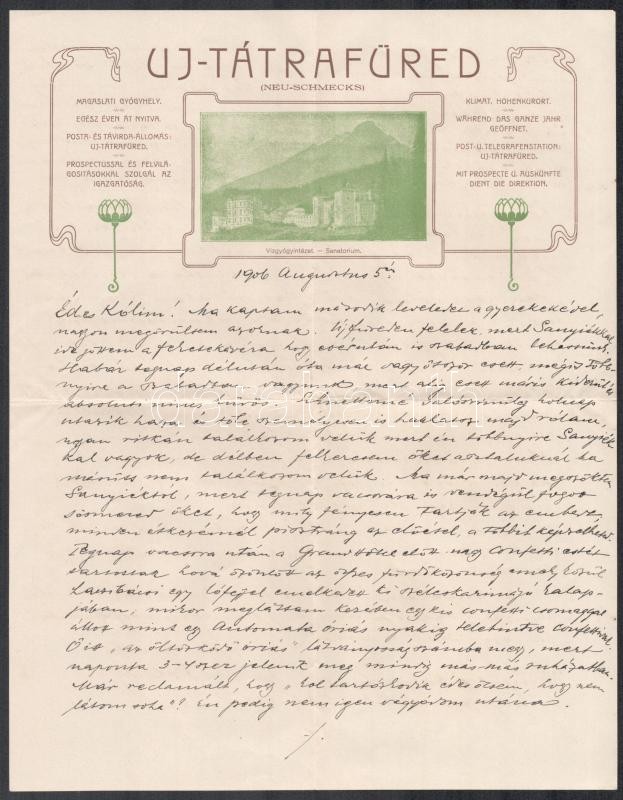 UJ-TÁTRAFÜRED
(NEU-SCHMECKS)
MAGASLATI GYÓGYHELY.
EGÉSZ ÉVEN ÁT NYITVA.
POSTA- ÉS TÁVIRDA-ÁLLOMÁS:
UJ-TÁTRAFÜRED.
PROSPECTUSSAL ÉS FELVILÁ-
GOSITÁSOKKAL SZOLGÁL AZ
IGAZGATÓSÁG.
KLIMAT. HÖHENKURORT.
WÄHREND DAS GANZE JAHR
GEÖFFNET.
POST- U. TELEGRAFENSTATION:
UJ-TÁTRAFÜRED.
MIT PROSPECTE U. AUSKÜNFTE
DIENT DIE DIREKTION.
Vizgyógyintézet. — Sanatorium.
1906 Augustus 5én
Édes Kólim! Ma kaptam második leveledet a gyerekekével,
nagyon megörültem azoknak. Ujfüreden felelek, mert Sanyiékkal
ide jöttem a fecskekávéra hogy ebéd után is szabadban lehessünk.
Habár tegnap délután óta már vagy ötször esett, mégis több-
nyire a szabadban vagyunk mert alig esett máris kiderül és
absolut nincs
utazik haza és tőle személyesen is hallasz majd rólam,
ugyan ritkán találkozom velük mert én többnyire Sanyiék-
kal vagyok, de délben felkeresem őket asztaluknál ha
máshol nem találkozom velük. Ma már majd megszöktem
Sanyiéktól, mert tegnap vacsorára is vendégül fogot
hogy mily fényesen tartják az embert
minden étkezésnél az előétel, a többit képzelheted.
Tegnap vacsora után a Grand Hotel előtt nagy Confetti estét
tartottak hová özönlött az összes fürdőközönség amely közül
Laczibácsi egy lófejjel emelkedett ki széleskarimájú kalap-
jában, mikor megláttam kezében egy kis confetti csomaggal
állott mint egy Automata óriás nyakig telehintve confettivel.
Ő itt "az öltözködő óriás" látványosság számba megy, mert
naponta 3-4szer jelenik meg mindig más-más ruházatban.
Már reclamált, hogy "hol tartózkodik édes öcsém, hogy nem
látom soha"? Én pedig nem igen vágyódom utána.
./.
darabanth